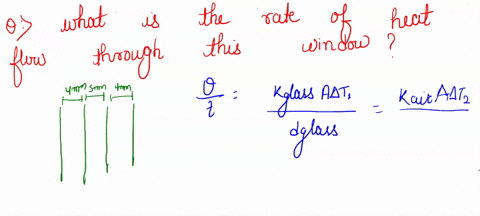 Q:> what is the rate of heat
flow through this window ?
4mm 5mm 4mm
Q/t = Kglass AΔT₁ / dglass = Kair AΔT₂